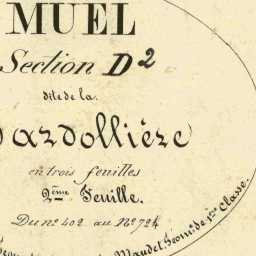 MUEL
Section D²
dite de la
ardollière
en trois feuilles
2ème Feuille.
Du n° 402 au N° 724
Maudet Géom. de 1ère Classe.